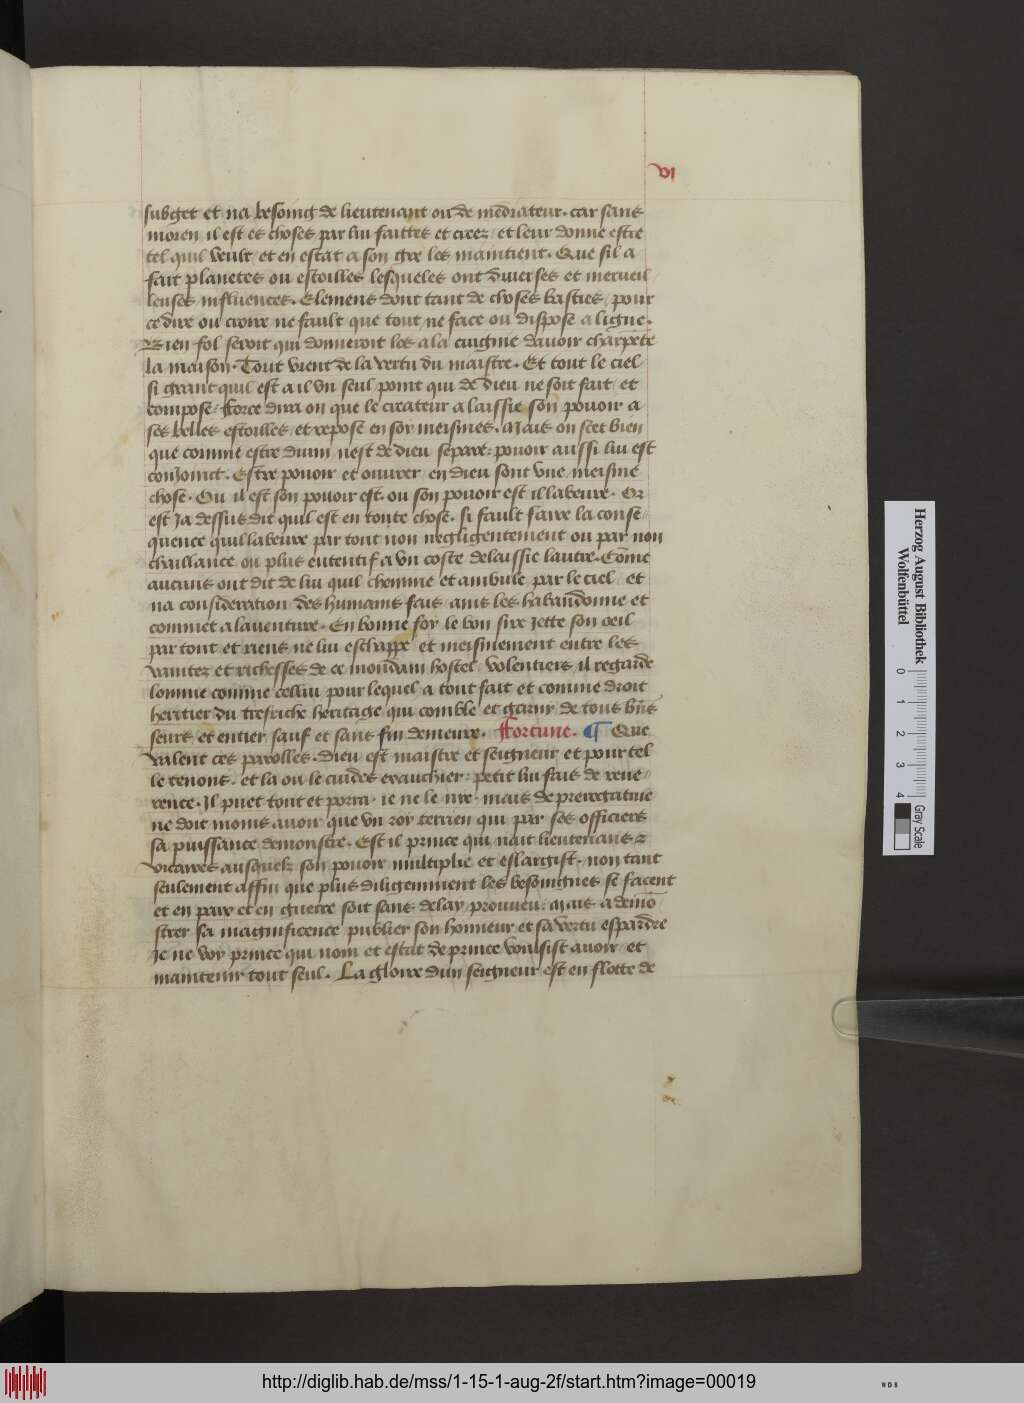 vi
subget et na besoing de lieutenant ou de mediateur. car sans
moien il est es choses par lui faittes et creez et leur donne estre
tel quil veult et en estat a son gre les maintient. Que sil a
fait planetes ou estoilles lesqueles ont diuerses et merueil
leuses influences. Elemens dont tant de choses basties pour
ce dire ou croire ne fault que tout ne face ou dispose a ligne.
Bien fol seroit qui donneroit los a la cuignie dauoir charpēte
la maison. Tout vient de la vertu du maistre. Et tout le ciel
si grant quil est a il vn seul point qui de dieu ne soit fait et
compose. Force dira on que le createur a laissie son pouoir a
ses belles estoilles et repose en soy meismes. Mais on scet bien
que comme estre diuin nest de dieu separe: pouoir aussi lui est
conjoinct. Estre pouoir et ouurer en dieu sont vne meisme
chose. Ou il est son pouoir est. ou son pouoir est il labeure. Or
est ja dessus dit quil est en toute chose. si fault faire la conse
quence quil labeure par tout non negligentement ou par non
chaillance ou plus ententif a vn coste delaissie lautre. Cōme
aucuns ont dit de lui quil chemine et ambule par le ciel et
na consideration des humains fais ains les habandonne et
commet a lauenture. En bonne foy le bon sire jette son oeil
par tout et riens ne lui eschappe et meismement entre les
vanitez et richesses de ce mondain hostel volentiers il regarde
lomme comme cellui pour lequel a tout fait et comme droit
heritier du tresriche heritage qui comble et garni de tous biēs
seurs et entier sauf et sans fin demeure. Fortune. ¶ Que
valent ces parolles. dieu est maistre et seigneur et pour tel
le tenons. et la ou le cuides exauchier petit lui fais de reue
rence. Il puet tout et porra ie ne le nye. mais de prerogatiue
ne doit moins auoir que vn roy terrien qui par ses officiers
sa puissance demonstre. Est il prince qui nait lieutenans ⁊
vicaires ausquelz son pouoir multiplie et eslargist. non tant
seulement affin que plus diligemment les besoingnes se facent
et en paix et en guerre soit sans delay prouueu. mais a demō
strer sa magnificence publier son honneur et sa vertu espandre
Je ne voy prince qui nom et estat de prince voulsist auoir et
maintenir tout seul. La gloire dun seigneur est en flotte de
Herzog August Bibliothek
Wolfenbüttel
0 1 2 3 4
Gray Scale
http://diglib.hab.de/mss/1-15-1-aug-2f/start.htm?image=00019
WDB